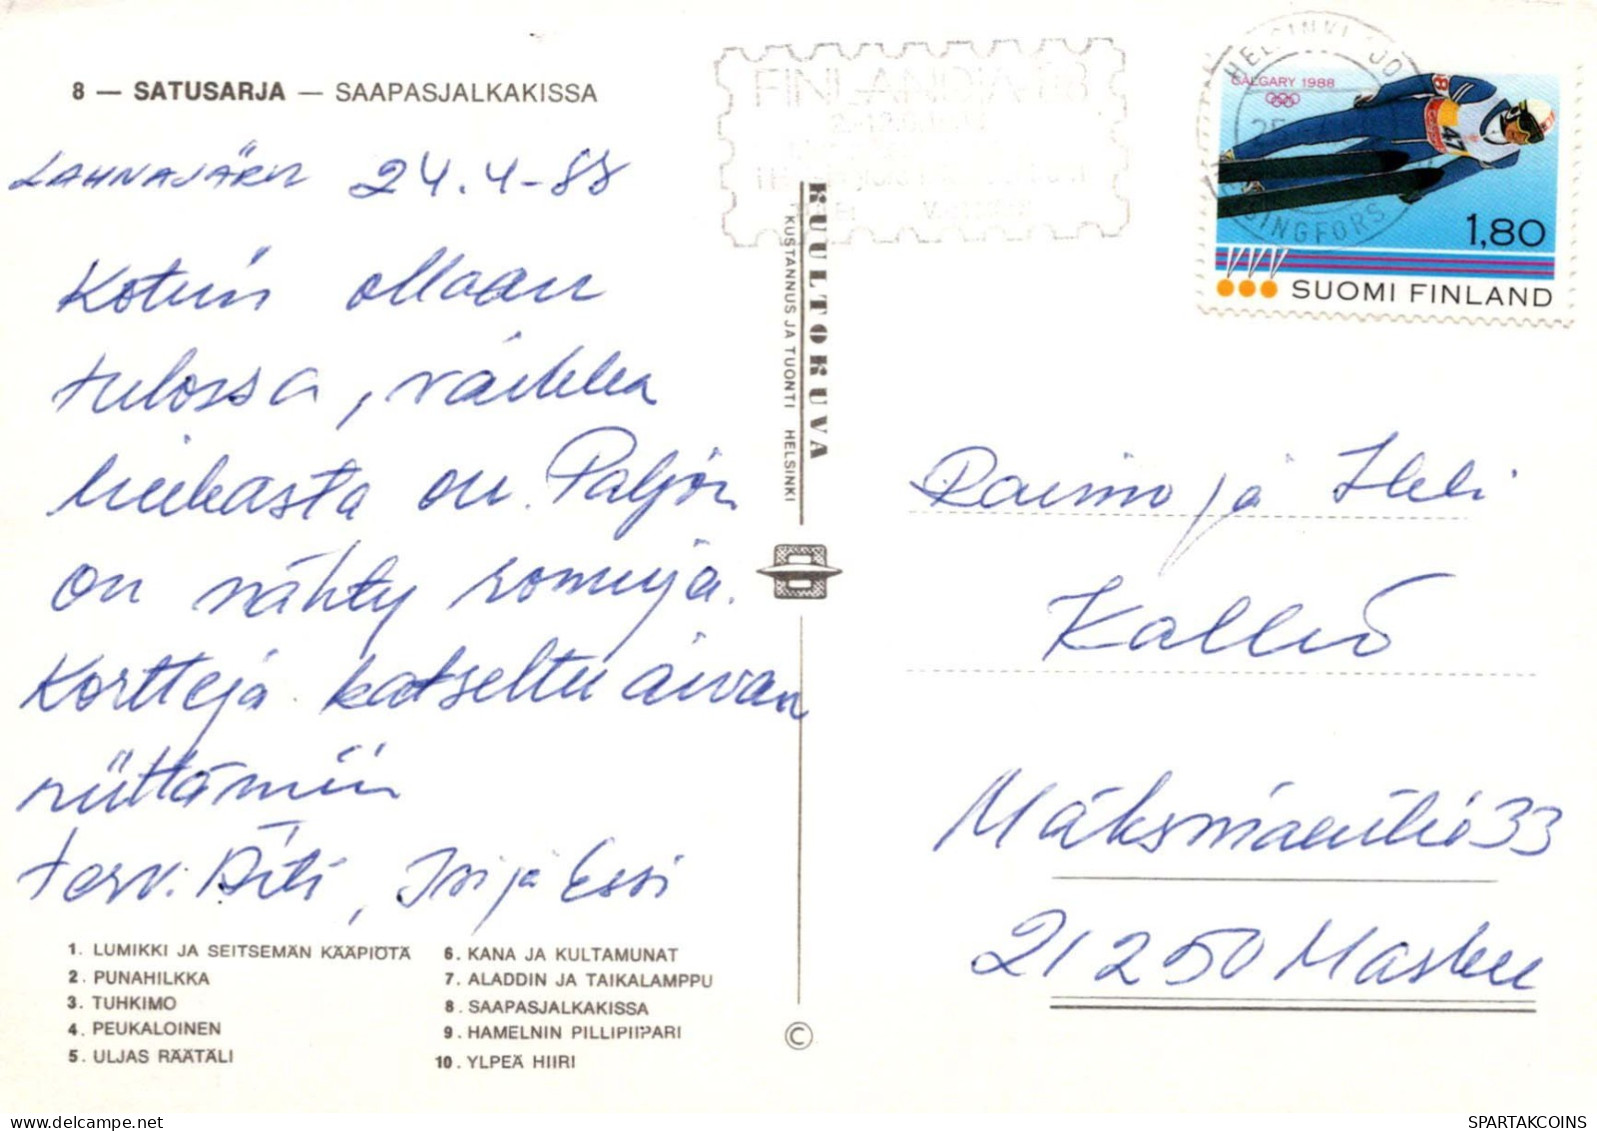 8 — SATUSARJA — SAAPASJALKAKISSA
LAHNAJÄRVI 24.4-88
Kotiin ollaan
tulossa, vaikka
hiekasta on. Paljon
on nähty romuja.
Kortteja katseltu aivan
riittämiin
terv. Äiti, Irji ja Essi
1. LUMIKKI JA SEITSEMÄN KÄÄPIÖTÄ
2. PUNAHILKKA
3. TUHKIMO
4. PEUKALOINEN
5. ULJAS RÄÄTÄLI
6. KANA JA KULTAMUNAT
7. ALADDIN JA TAIKALAMPPU
8. SAAPASJALKAKISSA
9. HAMELNIN PILLIPIIPARI
10. YLPEÄ HIIRI
KUULTOKUVA
KUSTANNUS JA TUONTI HELSINKI
©
FINLANDIA 88
HELSINKI
HELSINGFORS
25
CALGARY 1988
47
1,80
SUOMI FINLAND
Raimo ja Heli
Kallio
Mäksmäentie 33
21250 Masku
SPARTAKCOINS